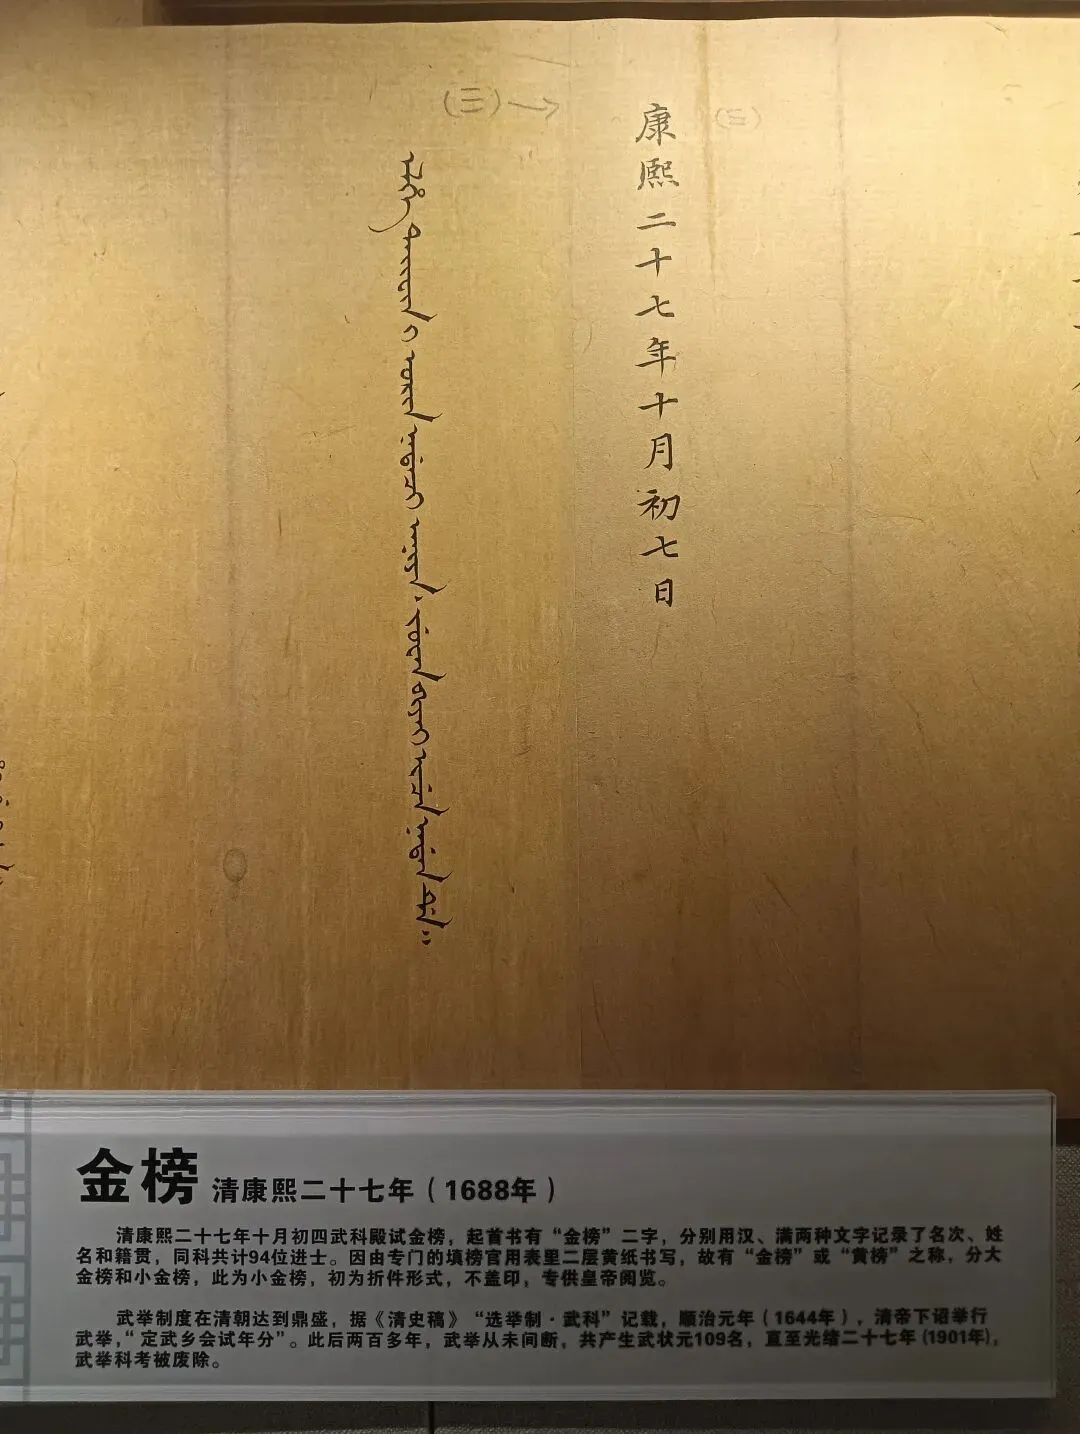 康熙二十七年十月初七日
(三)→
ᡝᠯᡥᡝ ᡨᠠᡳᡶᡳᠨ ᡳ ᠣᡵᡳᠨ ᠨᠠᡩᠠᠴᡳ ᠠᠨᡳᠶᠠ᠈ ᠵᡠᠸᠠᠨ ᠪᡳᠶᠠᡳ ᡳᠴᡝ ᠨᠠᡩᠠᠨ ᡩᡝ᠉
金榜 清康熙二十七年（1688年）
清康熙二十七年十月初四武科殿试金榜，起首书有“金榜”二字，分别用汉、满两种文字记录了名次、姓
名和籍贯，同科共计94位进士。因由专门的填榜官用表里二层黄纸书写，故有“金榜”或“黄榜”之称，分大
金榜和小金榜，此为小金榜，初为折件形式，不盖印，专供皇帝阅览。
武举制度在清朝达到鼎盛，据《清史稿》“选举制·武科”记载，顺治元年（1644年），清帝下诏举行
武举，“定武乡会试年分”。此后两百多年，武举从未间断，共产生武状元109名，直至光绪二十七年(1901年)，
武举科考被废除。